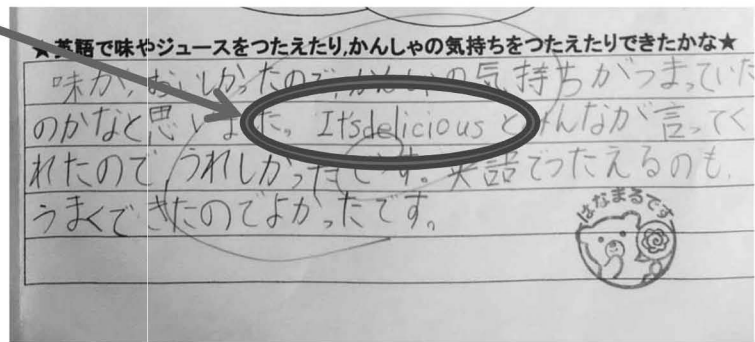 ★英語で味やジュースをつたえたり,かんしゃの気持ちをつたえたりできたかな★
味が、おいしかったので、かんしゃの気持ちがつまっていた
のかなと思いました。Itsdelicious とみんなが言ってく
れたので、うれしかったです。英語でつたえるのも、
うまくできたのでよかったです。
はなまるです